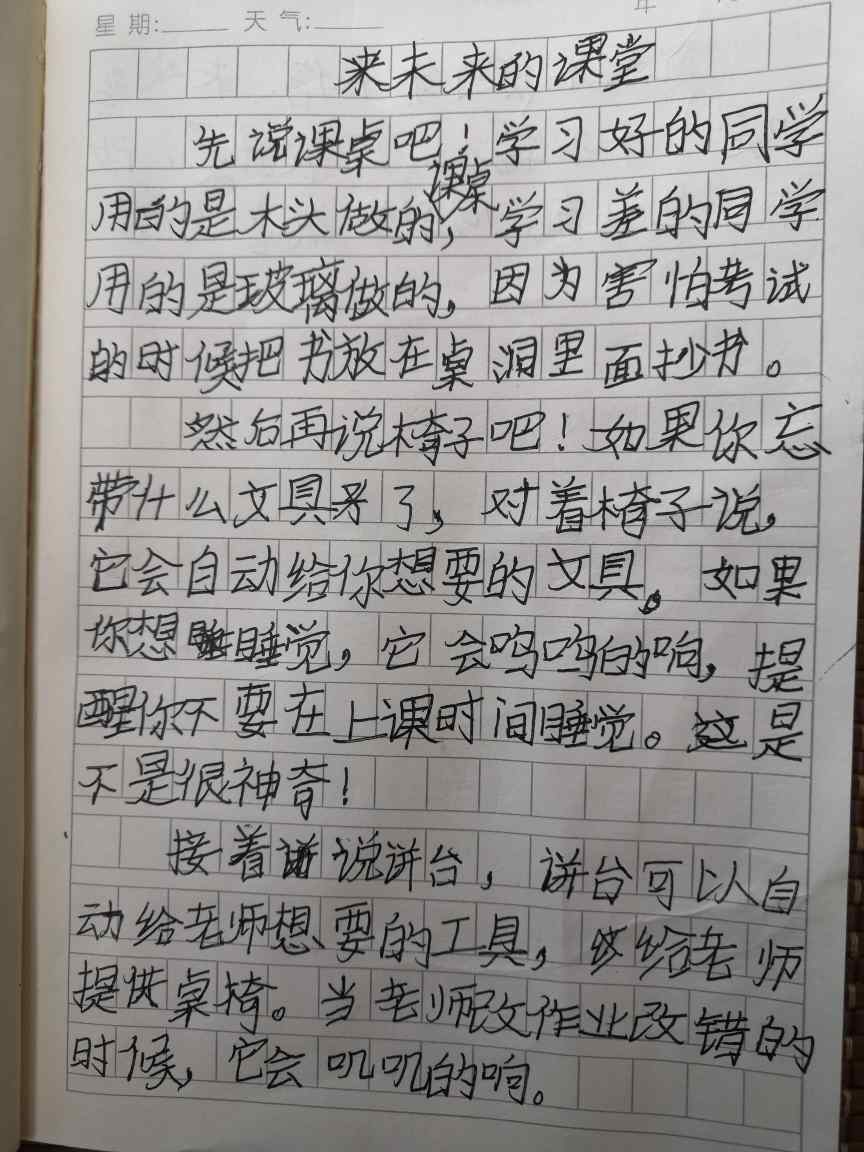 年
星期: 天气:
来未来的课堂
先说课桌吧！学习好的同学
课桌
用的是木头做的，学习差的同学
用的是玻璃做的，因为害怕考试
的时候把书放在桌洞里面抄书。
然后再说椅子吧！如果你忘
带什么文具了，对着椅子说，
它会自动给你想要的文具。如果
你想睡觉，它会呜呜的响，提
醒你不要在上课时间睡觉。这是
不是很神奇！
接着说讲台，讲台可以自
动给老师想要的工具，给老师
提供桌椅。当老师改作业改错的
时候，它会叽叽的响。